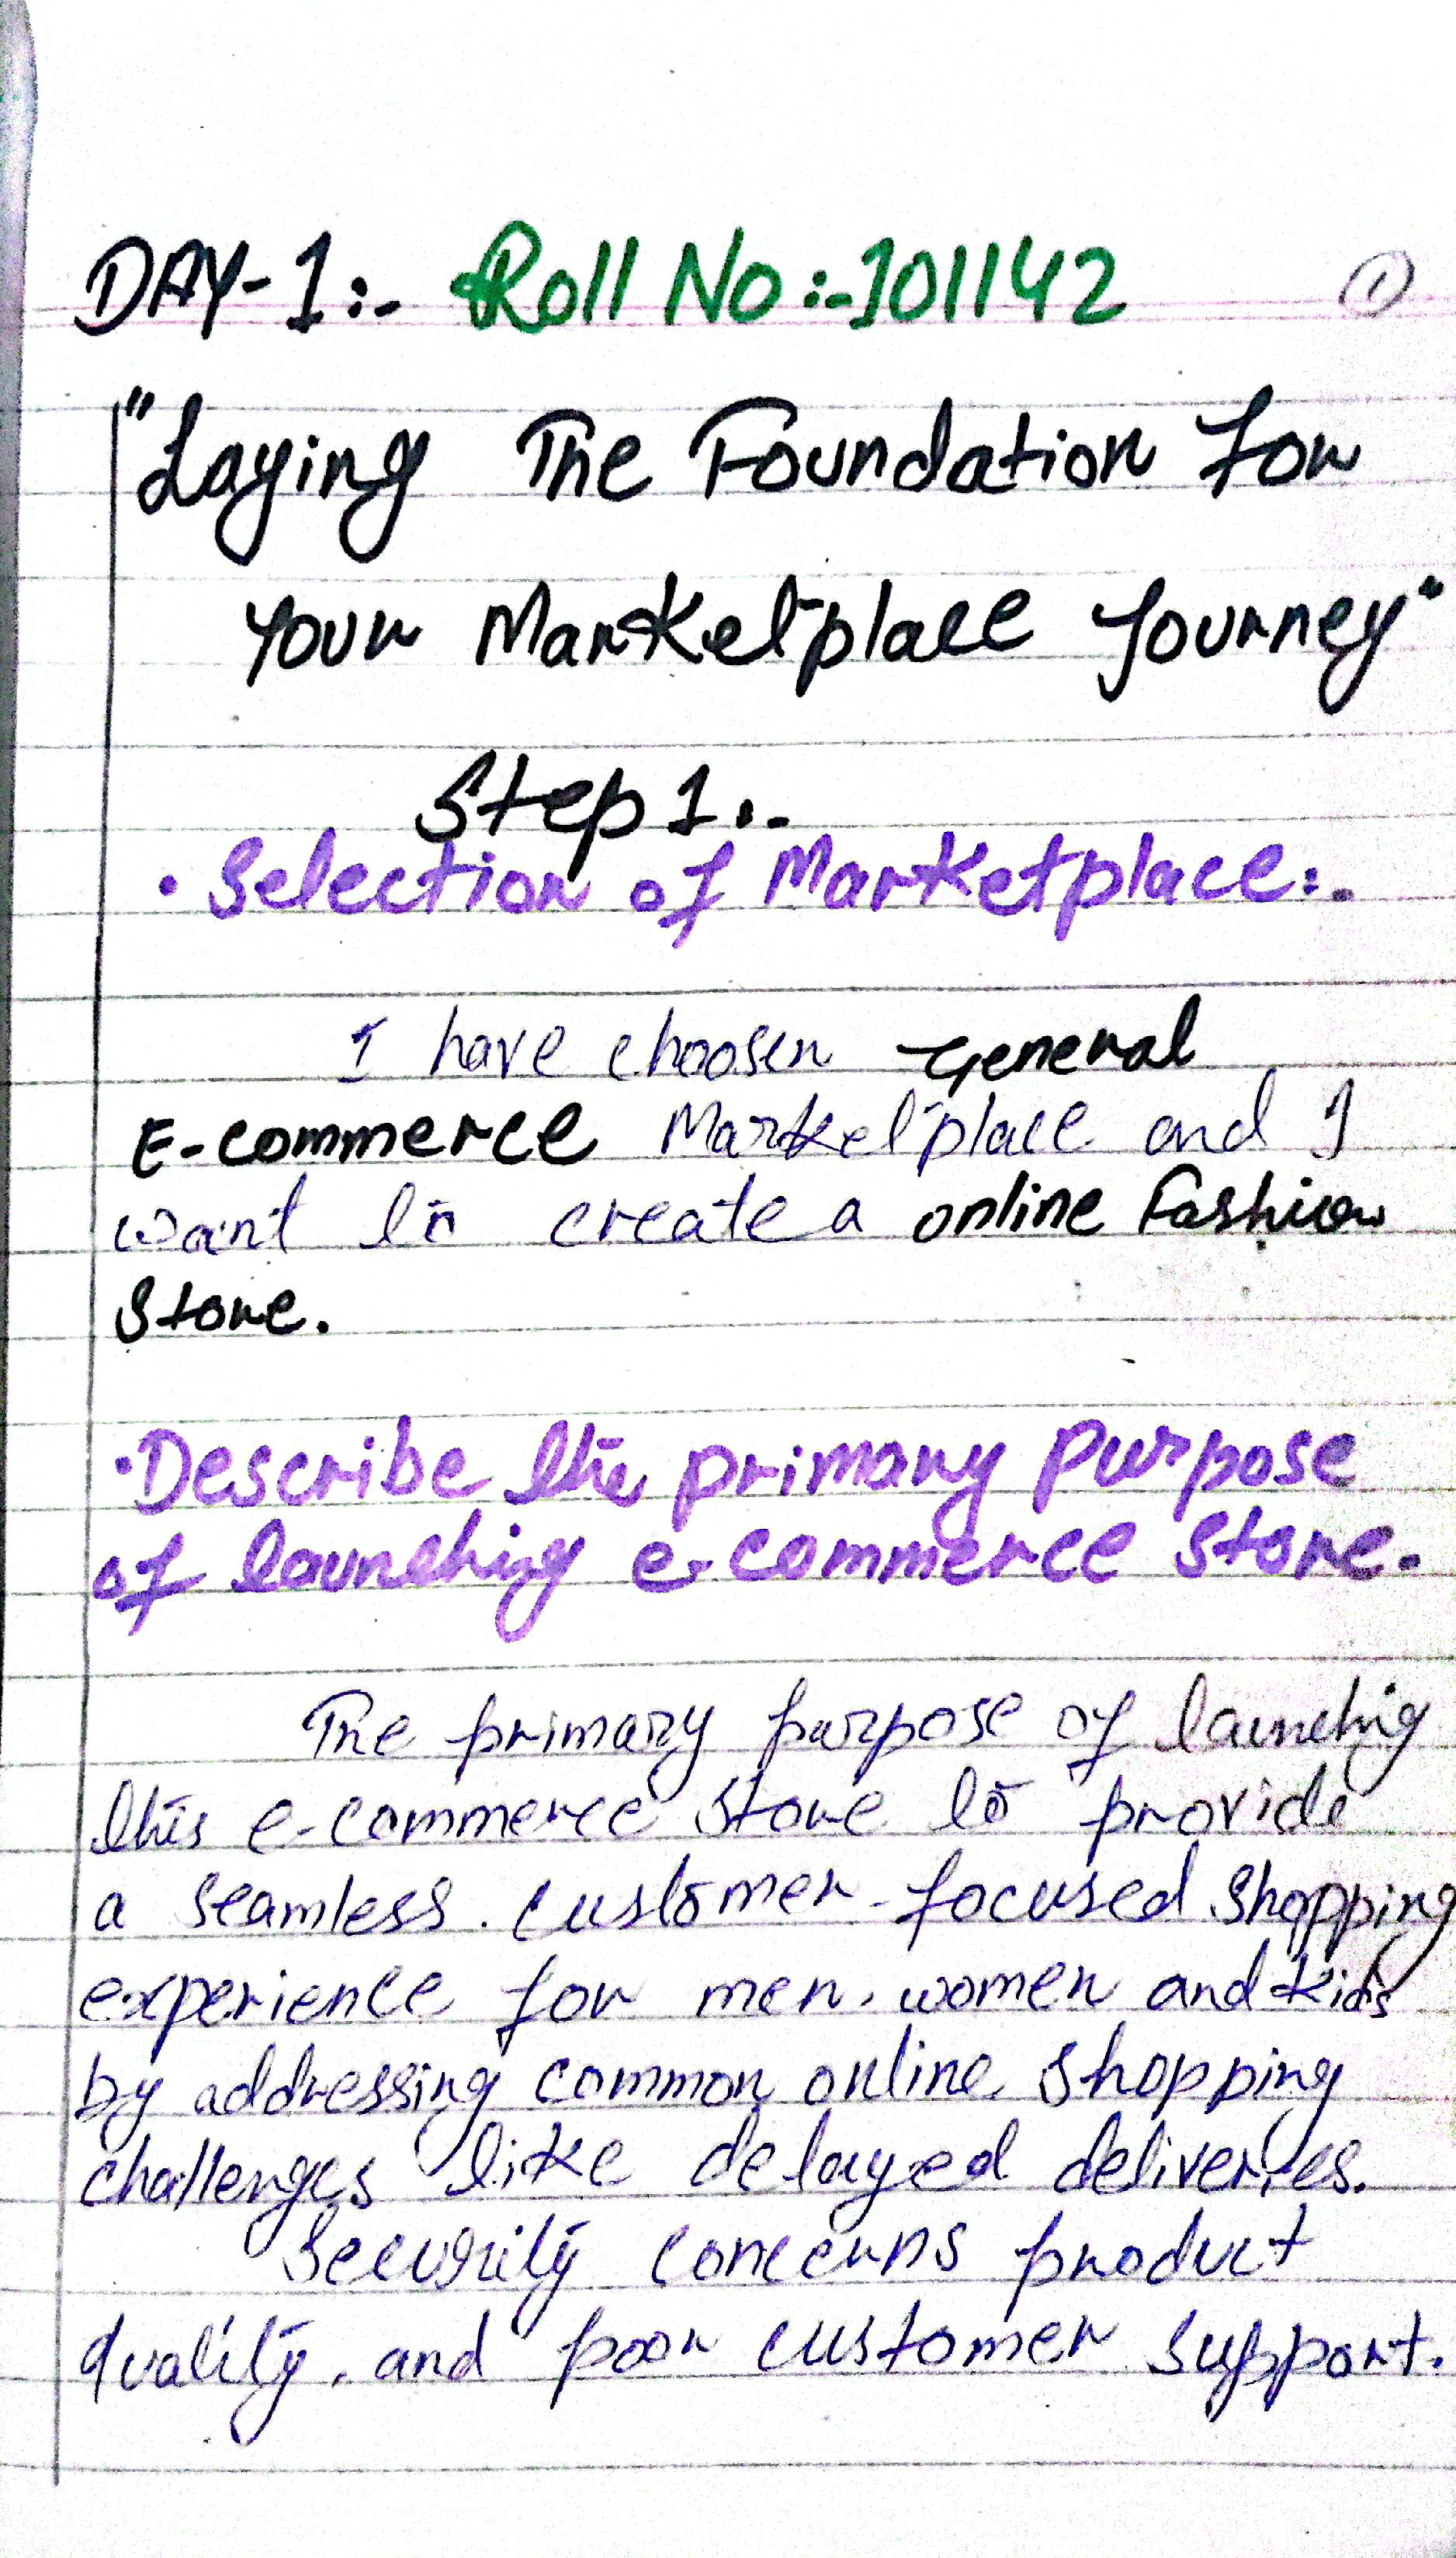 DAY-1:- Roll No:-101142 ①
"Laying The Foundation For
Your Marketplace Journey"
Step 1:-
• Selection of Marketplace:-
I have choosen General
E-commerce Marketplace and I
want to create a online Fashion
Store.
•Describe the primary purpose
of launching e-commerce store.
The primary purpose of launchig
this e-commerce store to provide
a seamless. customer-focused shopping
experience for men. women and kids
by addressing common online shopping
challenges like delayed deliveries.
Security concerns product
quality. and poor customer support.